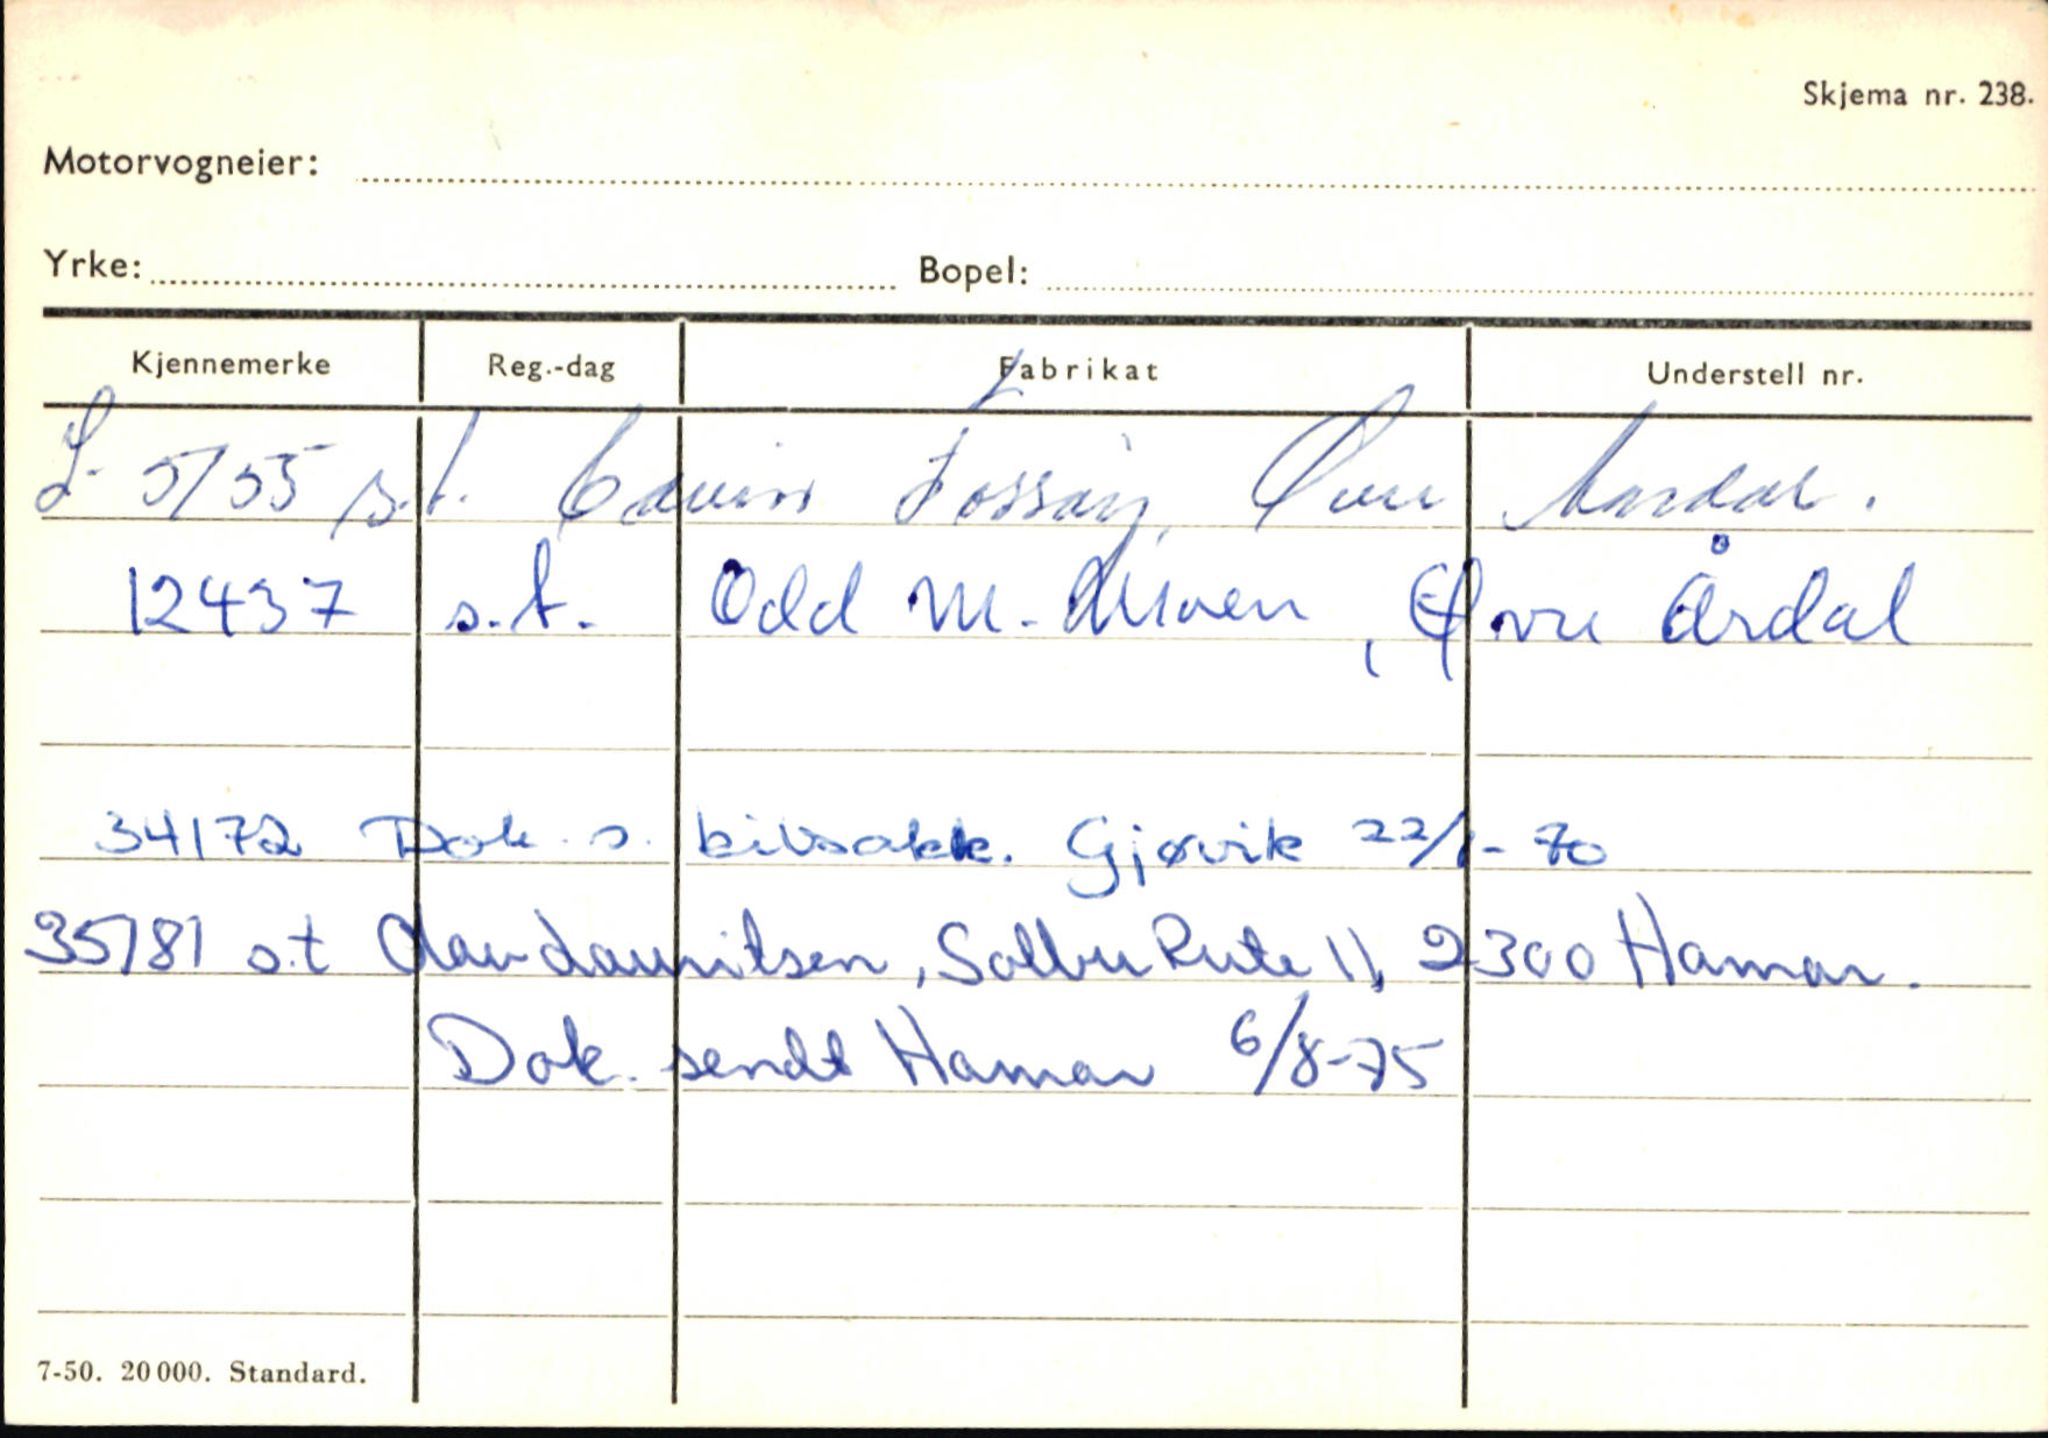 Skjema nr. 238.
Motorvogneier:
Yrke: Bopel:
Kjennemerke Reg.-dag Fabrikat Understell nr.
s.t. Edvin Øvre Aardal.
12437 s.t. Odd M. Moen, Øvre Årdal
34172 Dok. s. bilsakk. Gjøvik 22/1-70
35181 s.t Olav Lauritsen, Solbu Rute 11, 2300 Hamar.
Dok. sendt Hamar 6/8-75
7-50. 20 000. Standard.